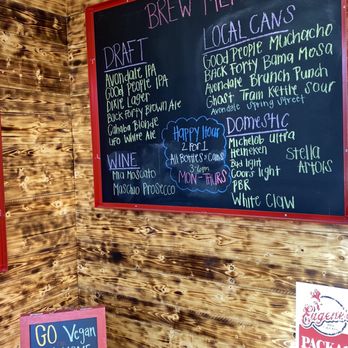 BREW
DRAFT
Avondale IPA
Good People IPA
Dixie Lager
Back Forty Brown Ale
Cahaba Blonde
UFO White Ale
WINE
Mia Moscato
Maschio Prosecco
Happy Hour
2 FOR 1
All Bottles & Cans
3-6pm
MON-THURS
LOCAL CANS
Good People Muchacho
Back Forty Bama Mosa
Avondale Branch Punch
Ghost Train Kettle Sour
Avondale Spring Street
DOMESTIC
Michelob Ultra
Heineken
Bud light
Coors light
PBR
White Claw
Stella
Artois
GO Vegan
Eugene's
PACKA